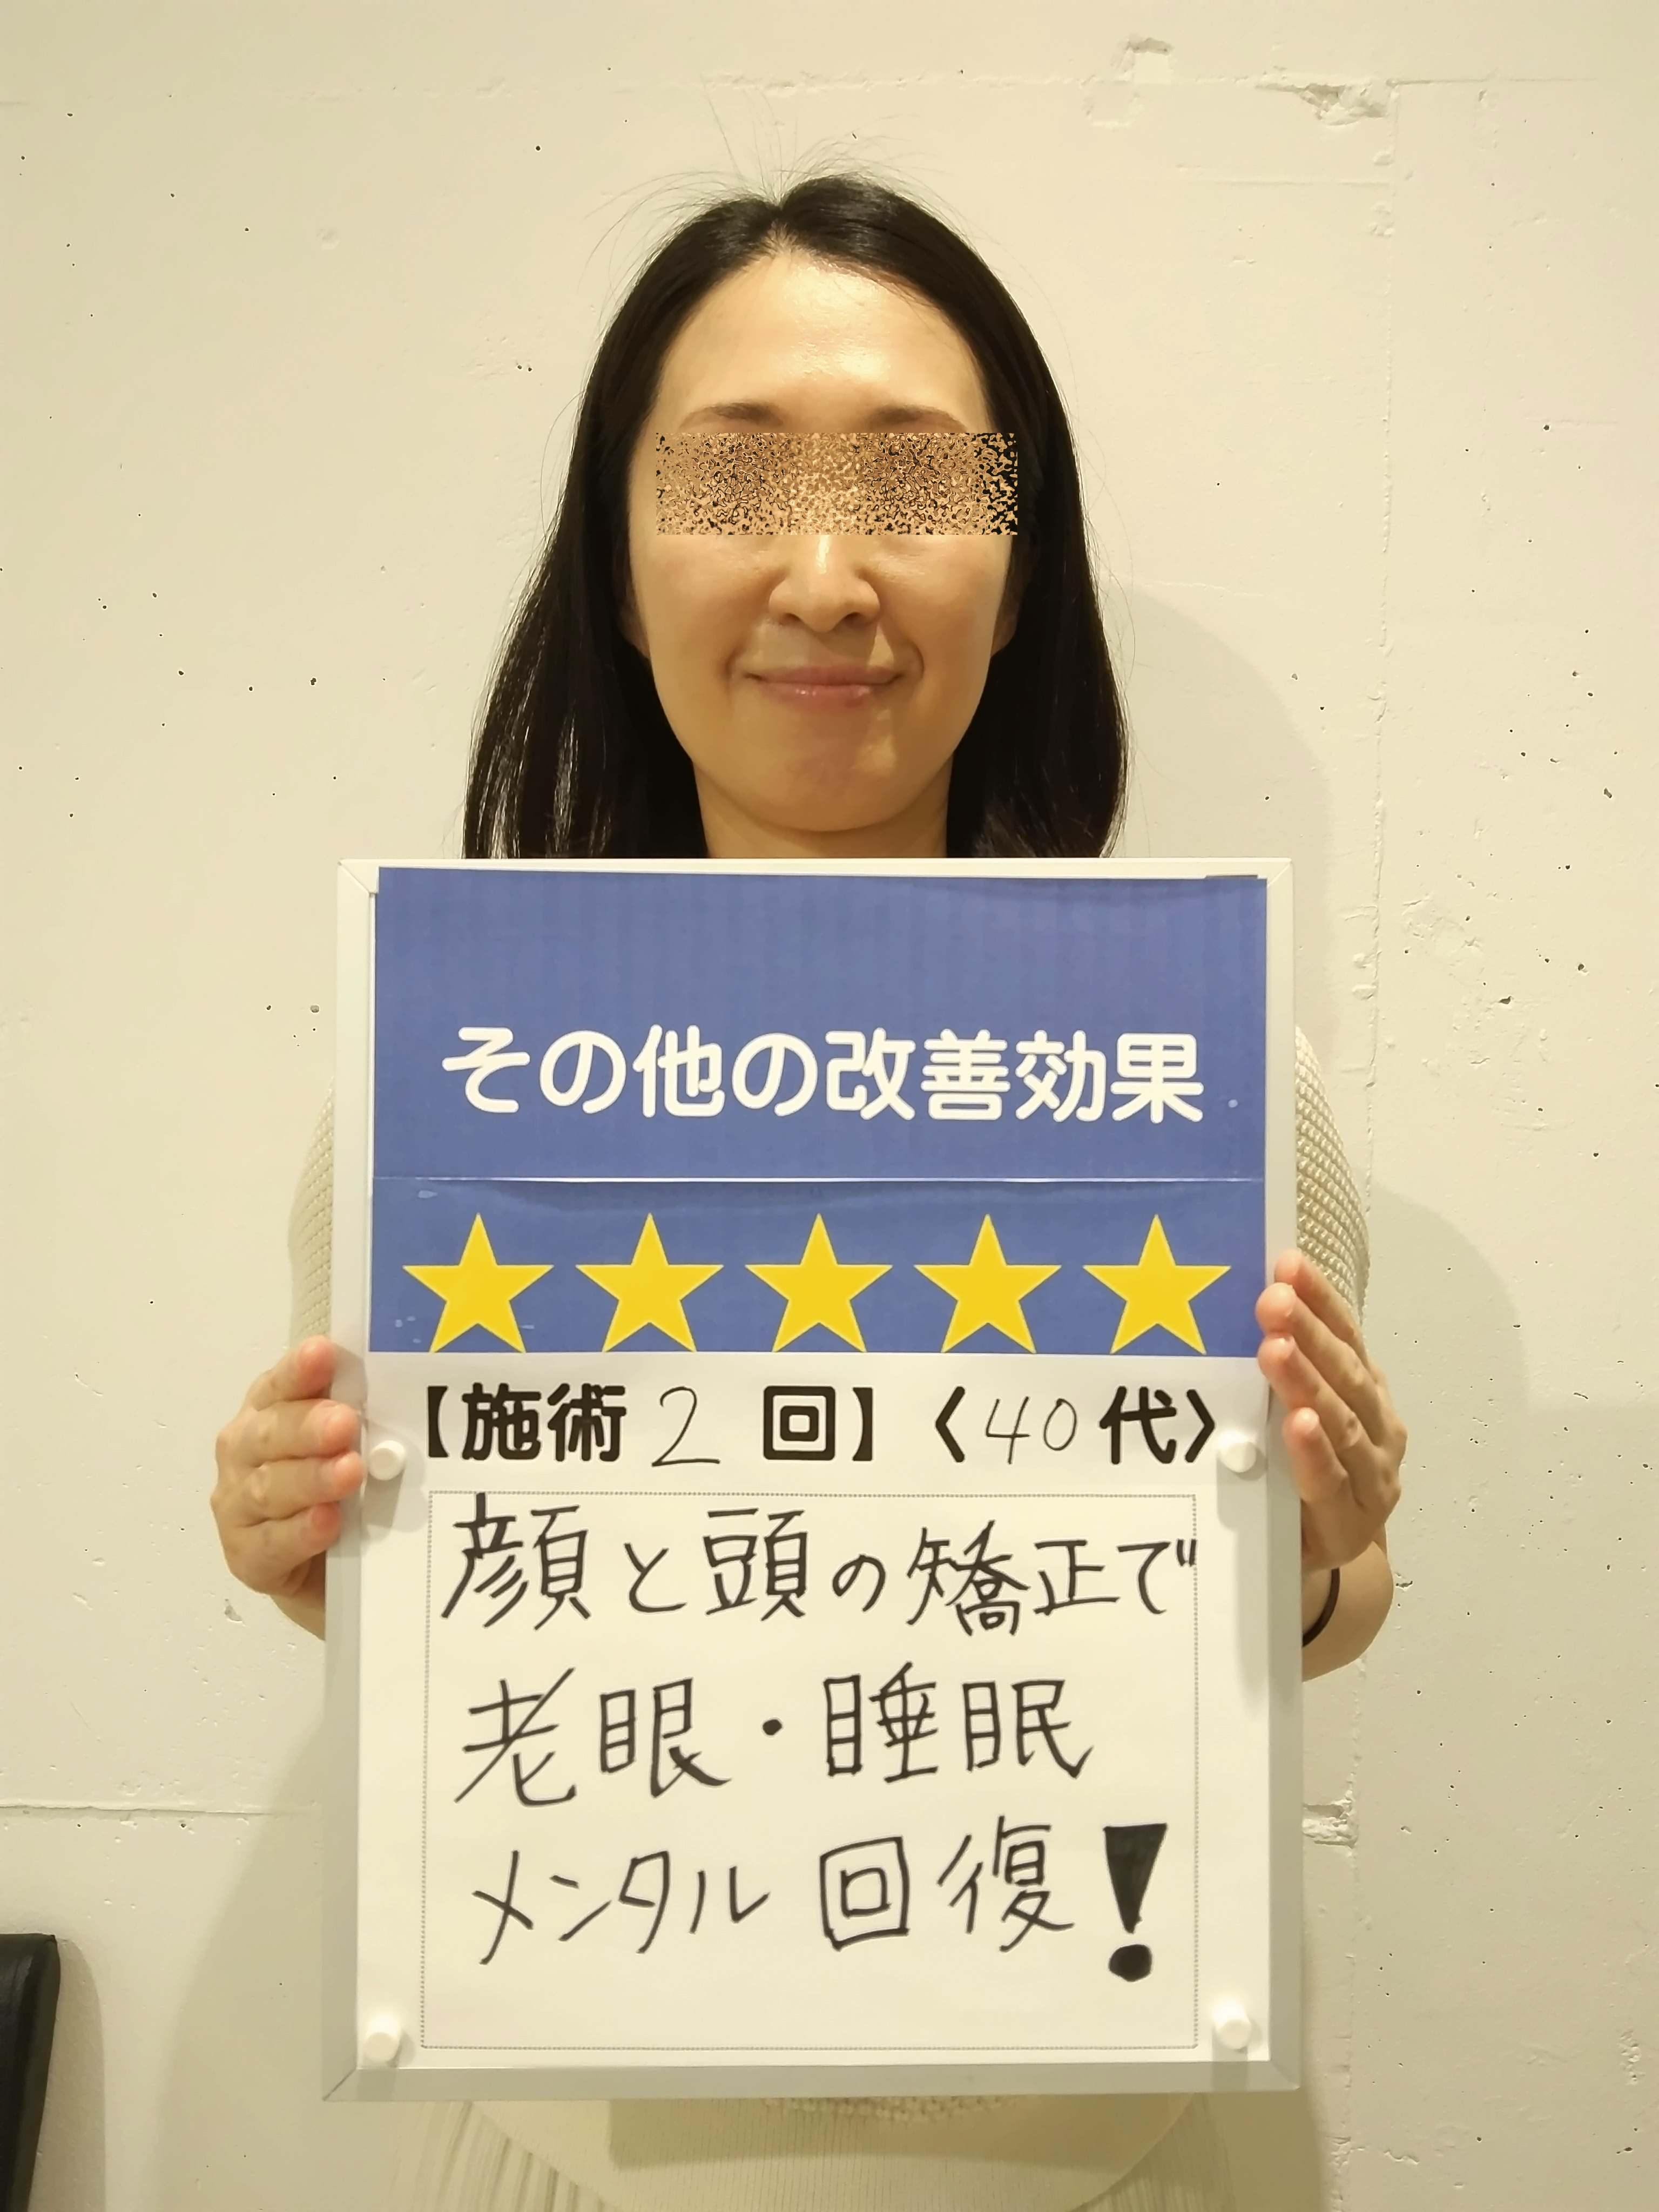 その他の改善効果
★★★★★
【施術2回】〈40代〉
顔と頭の矯正で
老眼・睡眠
メンタル回復!